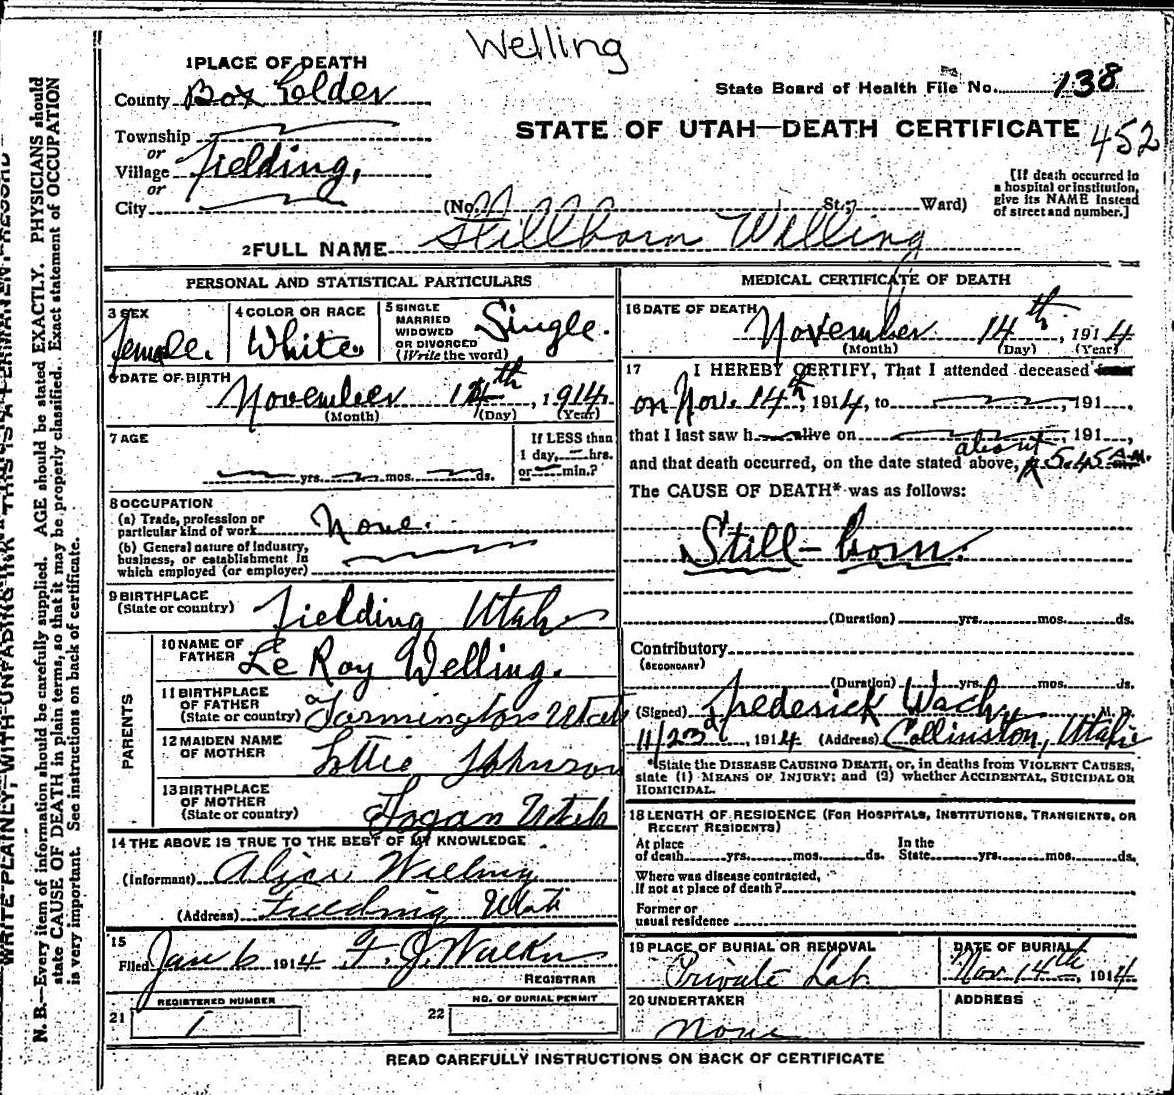 Welling
1 PLACE OF DEATH
County Box Elder
State Board of Health File No. 138
STATE OF UTAH—DEATH CERTIFICATE 452
Township
or
Village Fielding,
or
City
(No. St.; Ward)
[If death occurred in
a hospital or institution,
give its NAME instead
of street and number.]
2 FULL NAME Stillborn Welling
PERSONAL AND STATISTICAL PARTICULARS
3 SEX
Female.
4 COLOR OR RACE
White
5 SINGLE
MARRIED
WIDOWED
OR DIVORCED
(Write the word)
Single.
6 DATE OF BIRTH
November 14th, 1914.
(Month) (Day) (Year)
7 AGE
yrs. mos. ds.
If LESS than
1 day, hrs.
or min.?
8 OCCUPATION
(a) Trade, profession or
particular kind of work None.
(b) General nature of industry,
business, or establishment in
which employed (or employer)
9 BIRTHPLACE
(State or country) Fielding Utah
PARENTS
10 NAME OF
FATHER Le Roy Welling.
11 BIRTHPLACE
OF FATHER
(State or country) Farmington Utah
12 MAIDEN NAME
OF MOTHER Lottie Johnson
13 BIRTHPLACE
OF MOTHER
(State or country) Logan Utah
14 THE ABOVE IS TRUE TO THE BEST OF MY KNOWLEDGE
(Informant) Alice Welling
(Address) Fielding Utah
15
Filed Jan 6 1914 F. J. 
REGISTRAR
REGISTERED NUMBER
21 1
NO. OF BURIAL PERMIT
22
MEDICAL CERTIFICATE OF DEATH
16 DATE OF DEATH
November 14th, 1914
(Month) (Day) (Year)
17 I HEREBY CERTIFY, That I attended deceased
on Nov. 14th, 1914, to , 191 ,
that I last saw h alive on , 191 ,
about
and that death occurred, on the date stated above, at 5.45 A.M.
The CAUSE OF DEATH* was as follows:
Still-born.
(Duration) yrs. mos. ds.
Contributory
(SECONDARY)
(Duration) yrs. mos. ds.
(Signed) Frederick Wach, M. D.
11/23d, 1914 (Address) Collinston, Utah
*State the DISEASE CAUSING DEATH, or, in deaths from VIOLENT CAUSES,
state (1) MEANS OF INJURY; and (2) whether ACCIDENTAL, SUICIDAL OR
HOMICIDAL.
18 LENGTH OF RESIDENCE (FOR HOSPITALS, INSTITUTIONS, TRANSIENTS, OR
RECENT RESIDENTS)
At place
of death yrs. mos. ds.
In the
State yrs. mos. ds.
Where was disease contracted,
if not at place of death?
Former or
usual residence
19 PLACE OF BURIAL OR REMOVAL
Private Lot.
DATE OF BURIAL
Nov 14th, 1914
20 UNDERTAKER
None
ADDRESS
READ CAREFULLY INSTRUCTIONS ON BACK OF CERTIFICATE
WRITE PLAINLY, WITH UNFADING INK—THIS IS A PERMANENT RECORD
N. B.—Every item of information should be carefully supplied. AGE should be stated EXACTLY. PHYSICIANS should
state CAUSE OF DEATH in plain terms, so that it may be properly classified. Exact statement of OCCUPATION
is very important. See instructions on back of certificate.